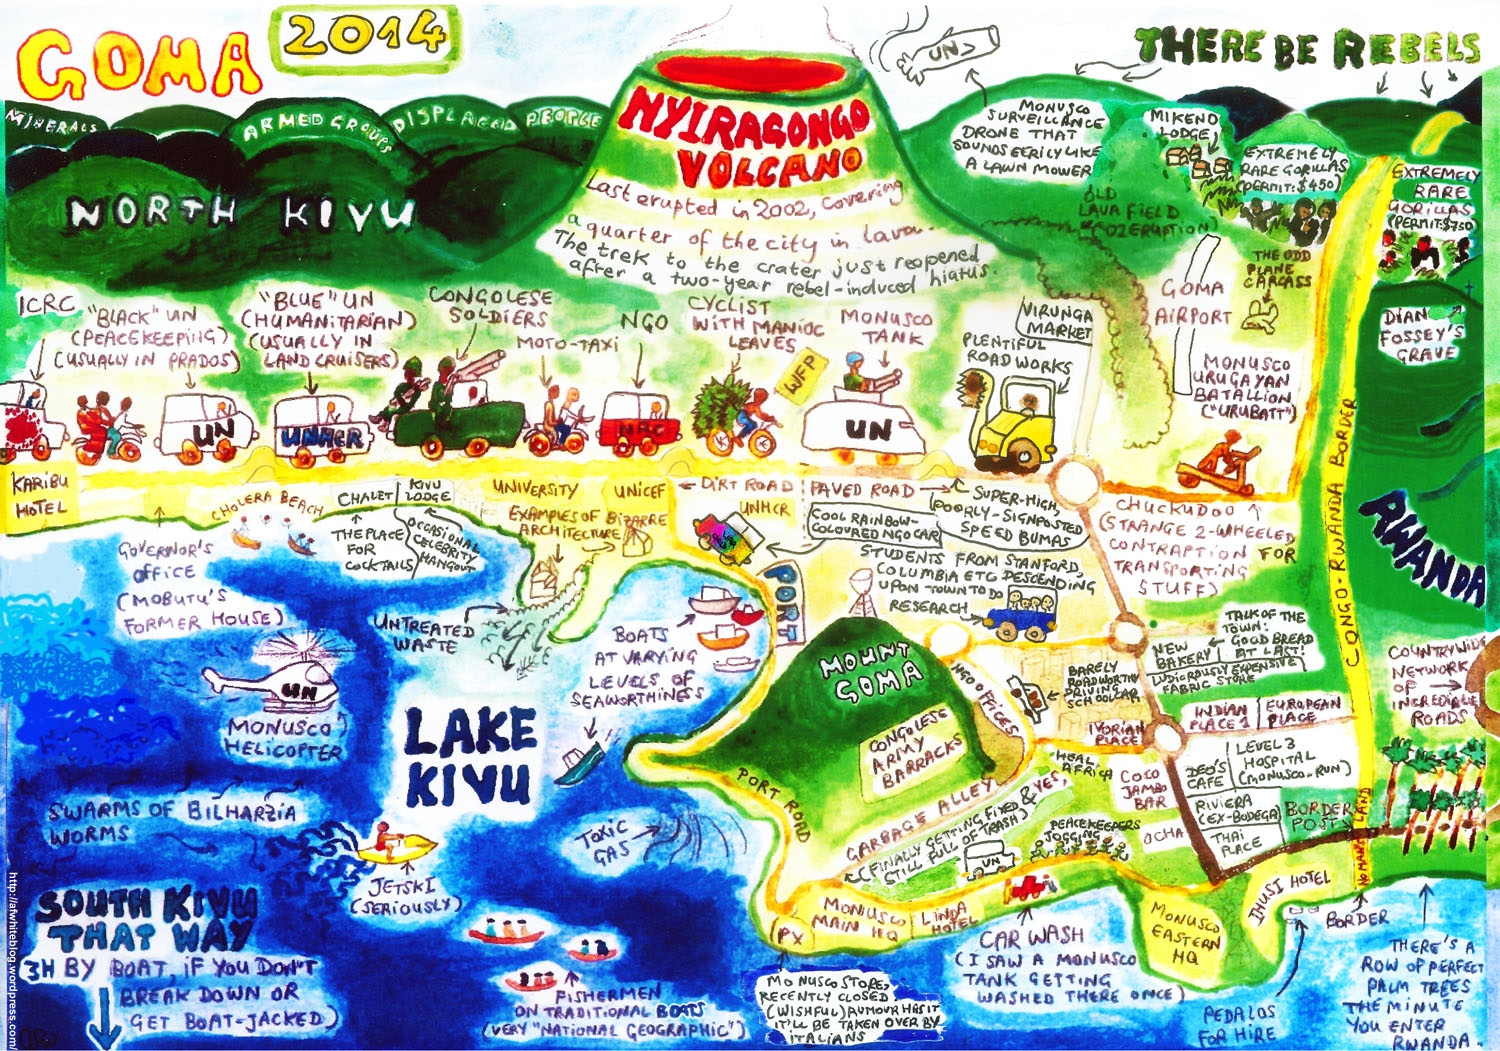 GOMA
2014
THERE BE REBELS
MINERALS
ARMED GROUPS
DISPLACED PEOPLE
NORTH KIVU
NYIRAGONGO
VOLCANO
Last erupted in 2002, covering
a quarter of the city in lava.
The trek to the crater just reopened
after a two-year rebel-induced hiatus.
UN
MONUSCO
SURVEILLANCE
DRONE THAT
SOUNDS EERILY LIKE
A LAWN MOWER
MIKENO
LODGE
EXTREMELY
RARE GORILLAS
(PERMIT: $450)
EXTREMELY
RARE
GORILLAS
(PERMIT: $750)
OLD
LAVA FIELD
ERUPTION)
THE ODD
PLANE
CARCASS
GOMA
AIRPORT
DIAN
FOSSEY'S
GRAVE
ICRC
"BLACK" UN
(PEACEKEEPING)
(USUALLY IN PRADOS)
"BLUE" UN
(HUMANITARIAN)
(USUALLY IN
LAND CRUISERS)
CONGOLESE
SOLDIERS
MOTO-TAXI
NGO
CYCLIST
WITH MANIOC
LEAVES
MONUSCO
TANK
VIRUNGA
MARKET
PLENTIFUL
ROAD WORKS
MONUSCO
URUGAYAN
BATALLION
("URUBATT")
UN
UNHCR
NRC
WFP
UN
KARIBU
HOTEL
CHOLERA BEACH
CHALET
KIVU
LODGE
UNIVERSITY
UNICEF
DIRT ROAD
PAVED ROAD
UNHCR
SUPER-HIGH,
POORLY-SIGNPOSTED
SPEED BUMPS
CHUCKUDOO
(STRANGE 2-WHEELED
CONTRAPTION FOR
TRANSPORTING
STUFF)
CONGO-RWANDA BORDER
RWANDA
GOVERNOR'S
OFFICE
(MOBUTU'S
FORMER HOUSE)
THE PLACE
FOR
COCKTAILS
OCCASIONAL
CELEBRITY
HANGOUT
EXAMPLES OF BIZARRE
ARCHITECTURE
COOL RAINBOW-
COLOURED NGO CAR
WAR
CHILD
STUDENTS FROM STANFORD,
COLUMBIA ETC DESCENDING
UPON TOWN TO DO
RESEARCH
PORT
UNTREATED
WASTE
BOATS
AT VARYING
LEVELS OF
SEAWORTHINESS
MOUNT
GOMA
NGO OFFICES
BARELY
ROADWORTHY
DRIVING
SCHOOL CAR
TALK OF THE
TOWN:
GOOD BREAD
AT LAST!
NEW
BAKERY
LUDICROUSLY EXPENSIVE
FABRIC STORE
COUNTRYWIDE
NETWORK
OF
INCREDIBLE
ROADS
UN
MONUSCO
HELICOPTER
LAKE
KIVU
CONGOLESE
ARMY
BARRACKS
IVORIAN
PLACE
INDIAN
PLACE 1
EUROPEAN
PLACE
HEAL
AFRICA
COCO
JAMBO
BAR
DEO'S
CAFE
LEVEL 3
HOSPITAL
(MONUSCO-RUN)
RIVIERA
(EX-BODEGA)
THAI
PLACE
BORDER
POSTS
NO MANS LAND
OCHA
PORT ROAD
GARBAGE ALLEY
(FINALLY GETTING FIXED & YES,
STILL FULL OF TRASH)
PEACEKEEPERS
JOGGING
UN
SWARMS OF BILHARZIA
WORMS
TOXIC
GAS
JETSKI
(SERIOUSLY)
SOUTH KIVU
THAT WAY
3H BY BOAT, IF YOU DON'T
BREAK DOWN OR
GET BOAT-JACKED)
FISHERMEN
ON TRADITIONAL BOATS
(VERY "NATIONAL GEOGRAPHIC")
PX
MONUSCO
MAIN HQ
LINDA
HOTEL
CAR WASH
(I SAW A MONUSCO
TANK GETTING
WASHED THERE ONCE)
MONUSCO STORE,
RECENTLY CLOSED.
(WISHFUL) RUMOUR HAS IT
IT'LL BE TAKEN OVER BY
ITALIANS
MONUSCO
EASTERN
HQ
IHUSI HOTEL
BORDER
PEDALOS
FOR HIRE
THERE'S A
ROW OF PERFECT
PALM TREES
THE MINUTE
YOU ENTER
RWANDA.
http://afwhiteblog.wordpress.com/